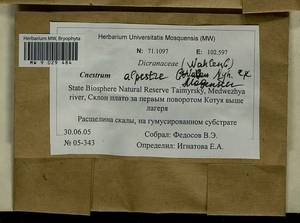 Herbarium Universitatis Mosquensis (MW)
Herbarium MW, Bryophyta
MW 9 029 484
N: 71.1097 E: 102.597
Dicranaceae (Wahlenb.
Cnestrum alpestre
State Biosphere Natural Reserve Taimyrsky, Medwezhya
river, Склон плато за первым поворотом Котуя выше
лагеря
Расщелина скалы, на гумусированном субстрате
30.06.05 Собрал: Федосов В.Э.
№ 05-343 Определил: Игнатова Е.А.